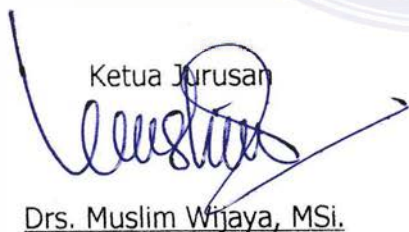 Ketua Jurusan
Drs. Muslim Wijaya, MSi.